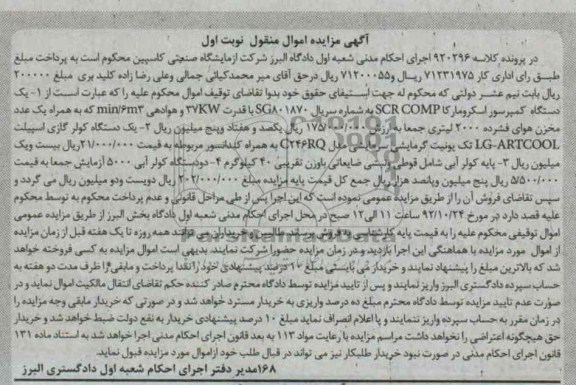 آگهی مزایده اموال منقول نوبت اول
در پرونده کلاسه ۹۲۰۲۹۶ اجرای احکام مدنی شعبه اول دادگاه البرز شرکت آزمایشگاه صنعتی کاسپین محکوم است به پرداخت مبلغ
طبق رای اداری کار ۷۱۲۳۱۹۷۵ ریال و ۷۱۲۰۰۰۵۵ ریال درحق آقای میر محمدکیائی جمالی وعلی رضا زاده کلید بری مبلغ ۲۰۰۰۰۰
ریال بابت نیم عشر دولتی که محکوم له جهت استیفای حقوق خود بدوا تقاضای توقیف اموال محکوم علیه را که عبارت است از ۱- یک
دستگاه کمپرسور اسکرومارکا SCR COMP به شماره سریال SG۸۰۱۸۷۰ با قدرت ۳۷KW و هوادهی min/۶m۳ که به همراه یک عدد
مخزن هوای فشرده ۲۰۰۰ لیتری جمعا به ارزش ۱۷۵/۰۰۰/۰۰۰ ریال یکصد و هفتاد وپنج میلیون ریال ۲- یک دستگاه کولر گازی اسپیلت
LG-ARTCOOL تک یونیت گرمایشی مدل C۲۴۶RQ به همراه کندانسور مربوطه به قیمت ۲۱/۰۰۰/۰۰۰ریال بیست ویک
میلیون ریال ۳- پایه کولر آبی شامل قوطی ونبشی ضایعاتی باوزن تقریبی ۴۰ کیلوگرم ۴- دودستگاه کولر آبی ۵۰۰۰ آزمایش جمعا به قیمت
۵/۵۰۰/۰۰۰ ریال پنج میلیون وپانصد هزار ریال جمع کل قیمت پایه مزایده مبلغ ۲۰۲/۰۰۰/۰۰۰ ریال دویست ودو میلیون ریال می گردد و
سپس تقاضای فروش آن را از طریق مزایده عمومی نموده است که این اجرا پس از طی مراحل قانونی و عدم پرداخت محکوم به توسط محکوم
علیه قصد دارد در مورخ ۹۲/۱۰/۲۴ ساعت ۱۱ الی ۱۲ صبح در محل اجرای احکام مدنی شعبه اول دادگاه بخش البرز از طریق مزایده عمومی
اموال توقیفی محکوم علیه را به قیمت پایه کارشناسی به فروش برساند طالبین و خریداران می توانند همه روزه تا یک هفته قبل از زمان مزایده
از اموال مورد مزایده با هماهنگی این اجرا بازدید ودر زمان مزایده حضورا شرکت نمایند. بدیهی است اموال مزایده به کسی فروخته خواهد
شد که بالاترین مبلغ را پیشنهاد نمایند و خریدار می بایستی مبلغ ۱۰ درصد پیشنهادی خود را نقدا پرداخت و مابقی را ظرف مدت دو هفته به
حساب سپرده دادگستری البرز واریز نمایند و پس از تایید مزایده توسط دادگاه محترم صادر کننده حکم تقاضای انتقال مالکیت اموال نماید و در
صورت عدم تایید مزایده توسط دادگاه محترم مبلغ ده درصد واریزی به خریدار مسترد خواهد شد و در صورتی که خریدار مابقی وجه مزایده را
در زمان مقرر به حساب سپرده واریز ننمایند و یا اعلام انصراف نماید مبلغ ۱۰ درصد پیشنهادی خریدار به نفع دولت ضبط خواهد شد و خریدار
حق هیچگونه اعتراضی را نخواهد داشت مراسم مزایده با رعایت مواد ۱۱۳ به بعد قانون اجرای احکام مدنی اجرا خواهد شد به استناد ماده ۱۳۱
قانون اجرای احکام مدنی در صورت نبود خریدار طلبکار نیز می تواند در قبال طلب خود ازاموال مورد مزایده قبول نماید.
۱۶۸مدیر دفتر اجرای احکام شعبه اول دادگستری البرز